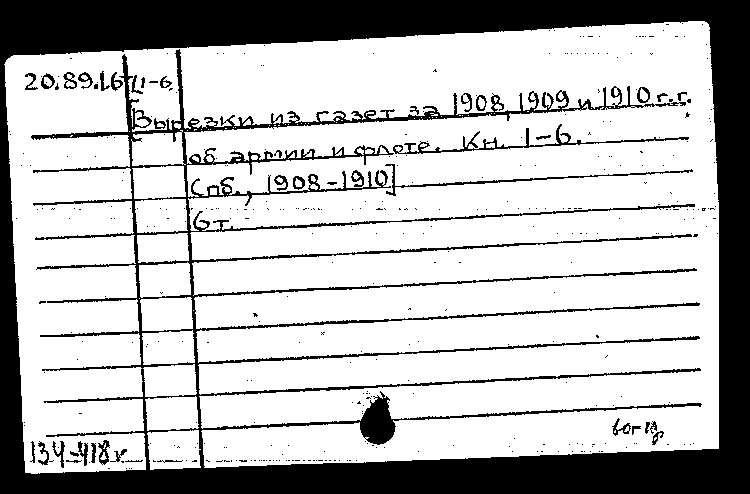 20.89.1.6/1-6
[Вырезки из газет за 1908, 1909 и 1910 г.г.
об армии и флоте. Кн. 1-6.
Спб., 1908-1910]
6т.
134-418 к